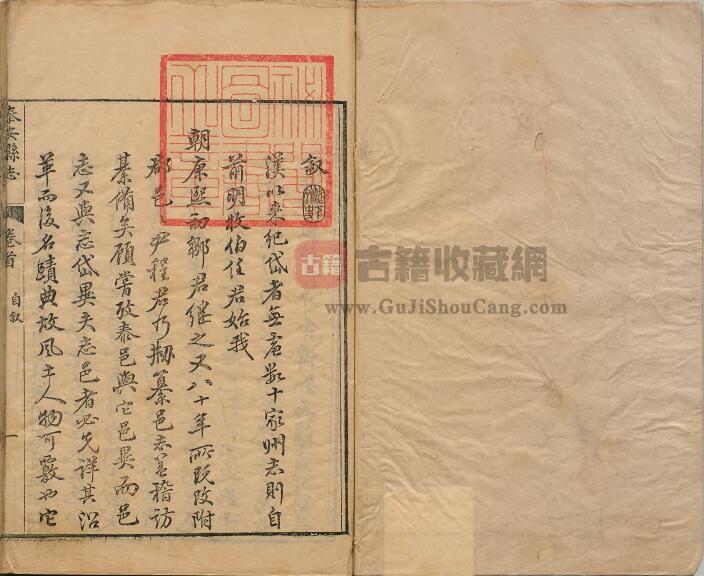 叙
漢以來紀岱者無慮數十家州志則自
前明牧伯任君始我
朝康熙初鄒君繼之又八十年所既改附
郡邑 尹程君乃剏纂邑志蓋稽訪
綦備矣顧嘗攷泰邑與它邑異而邑
志又與志岱異夫志邑者必先詳其沿
革而後名蹟典故風土人物可覈也它
泰安縣志
卷首
自叙
一
古籍
古籍收藏網
www.GuJiShouCang.com